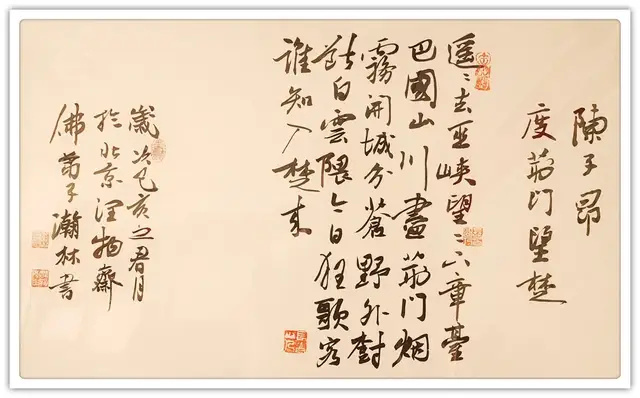 陳子昂
度荊門望楚
遥〻去巫峽望〻下章臺
巴國山川盡荊門烟
霧開城分蒼野外樹
断白雲隈今日狂歌客
誰知入楚来
歲次己亥之春月
於北京潤物齋
佛弟子瀚林書